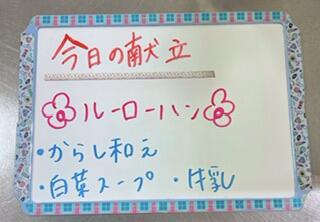 今日の献立
ルーローハン
・からし和え
・白菜スープ ・牛乳